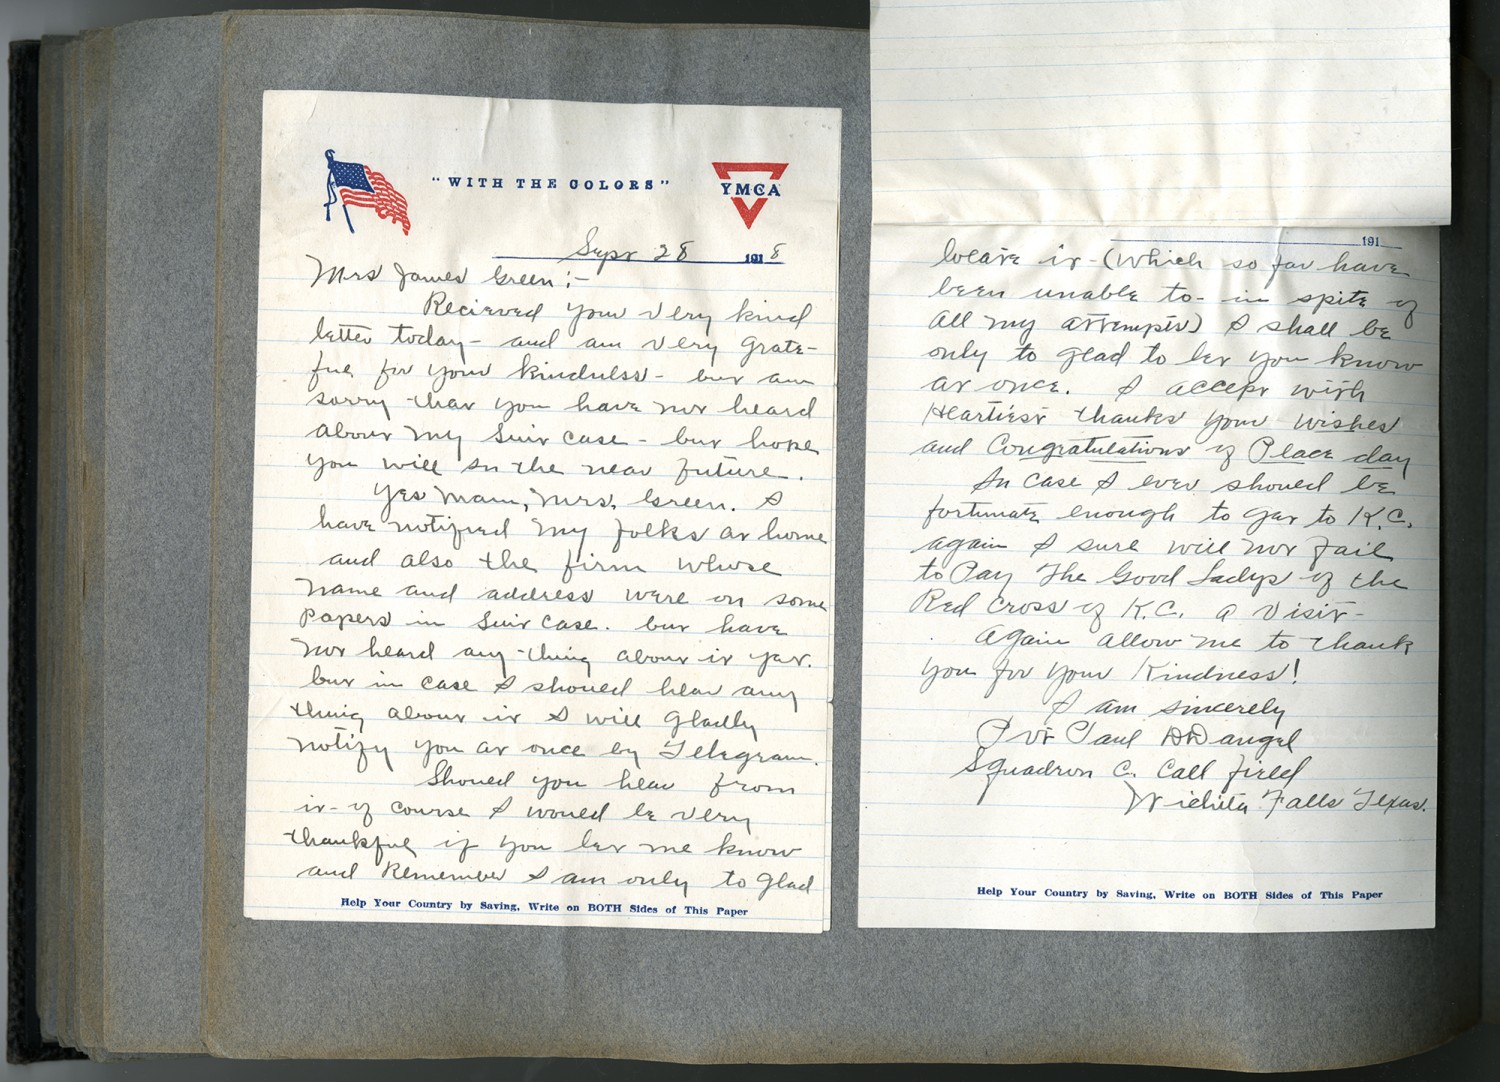 "WITH THE COLORS"
YMCA
Sept 28 1918
Mrs James Green;-
Recieved your very kind
letter today- and am very grate-
ful for your kindness- but am
sorry that you have not heard
about my suit case- but hope
you will in the near future.
Yes Mam, Mrs. Green. I
have notified my folks at home
and also the firm whose
name and address were on some
papers in suit case. but have
not heard any-thing about it yat.
but in case I should hear any
thing about it I will gladly
notify you at once by Telegram.
Should you hear from
it- of course I would be very
thankful if you let me know
and Remember I am only to glad
Help Your Country by Saving, Write on BOTH Sides of This Paper
191
locate it- (which so far have
been unable to- in spite of
all my attempts) I shall be
only to glad to let you know
at once. I accept with
Heartiest thanks your wishes
and Congratulations of Peace day
In case I ever should be
fortunate enough to gat to K.C.
again I sure will not fail
to Pay The Good Ladys of the
Red Cross of K.C. a visit-
Again allow me to thank
you for your Kindness!
I am sincerely
Pvt Paul Dangel
Squadron C. Call field
Wichita Falls Texas.
Help Your Country by Saving, Write on BOTH Sides of This Paper